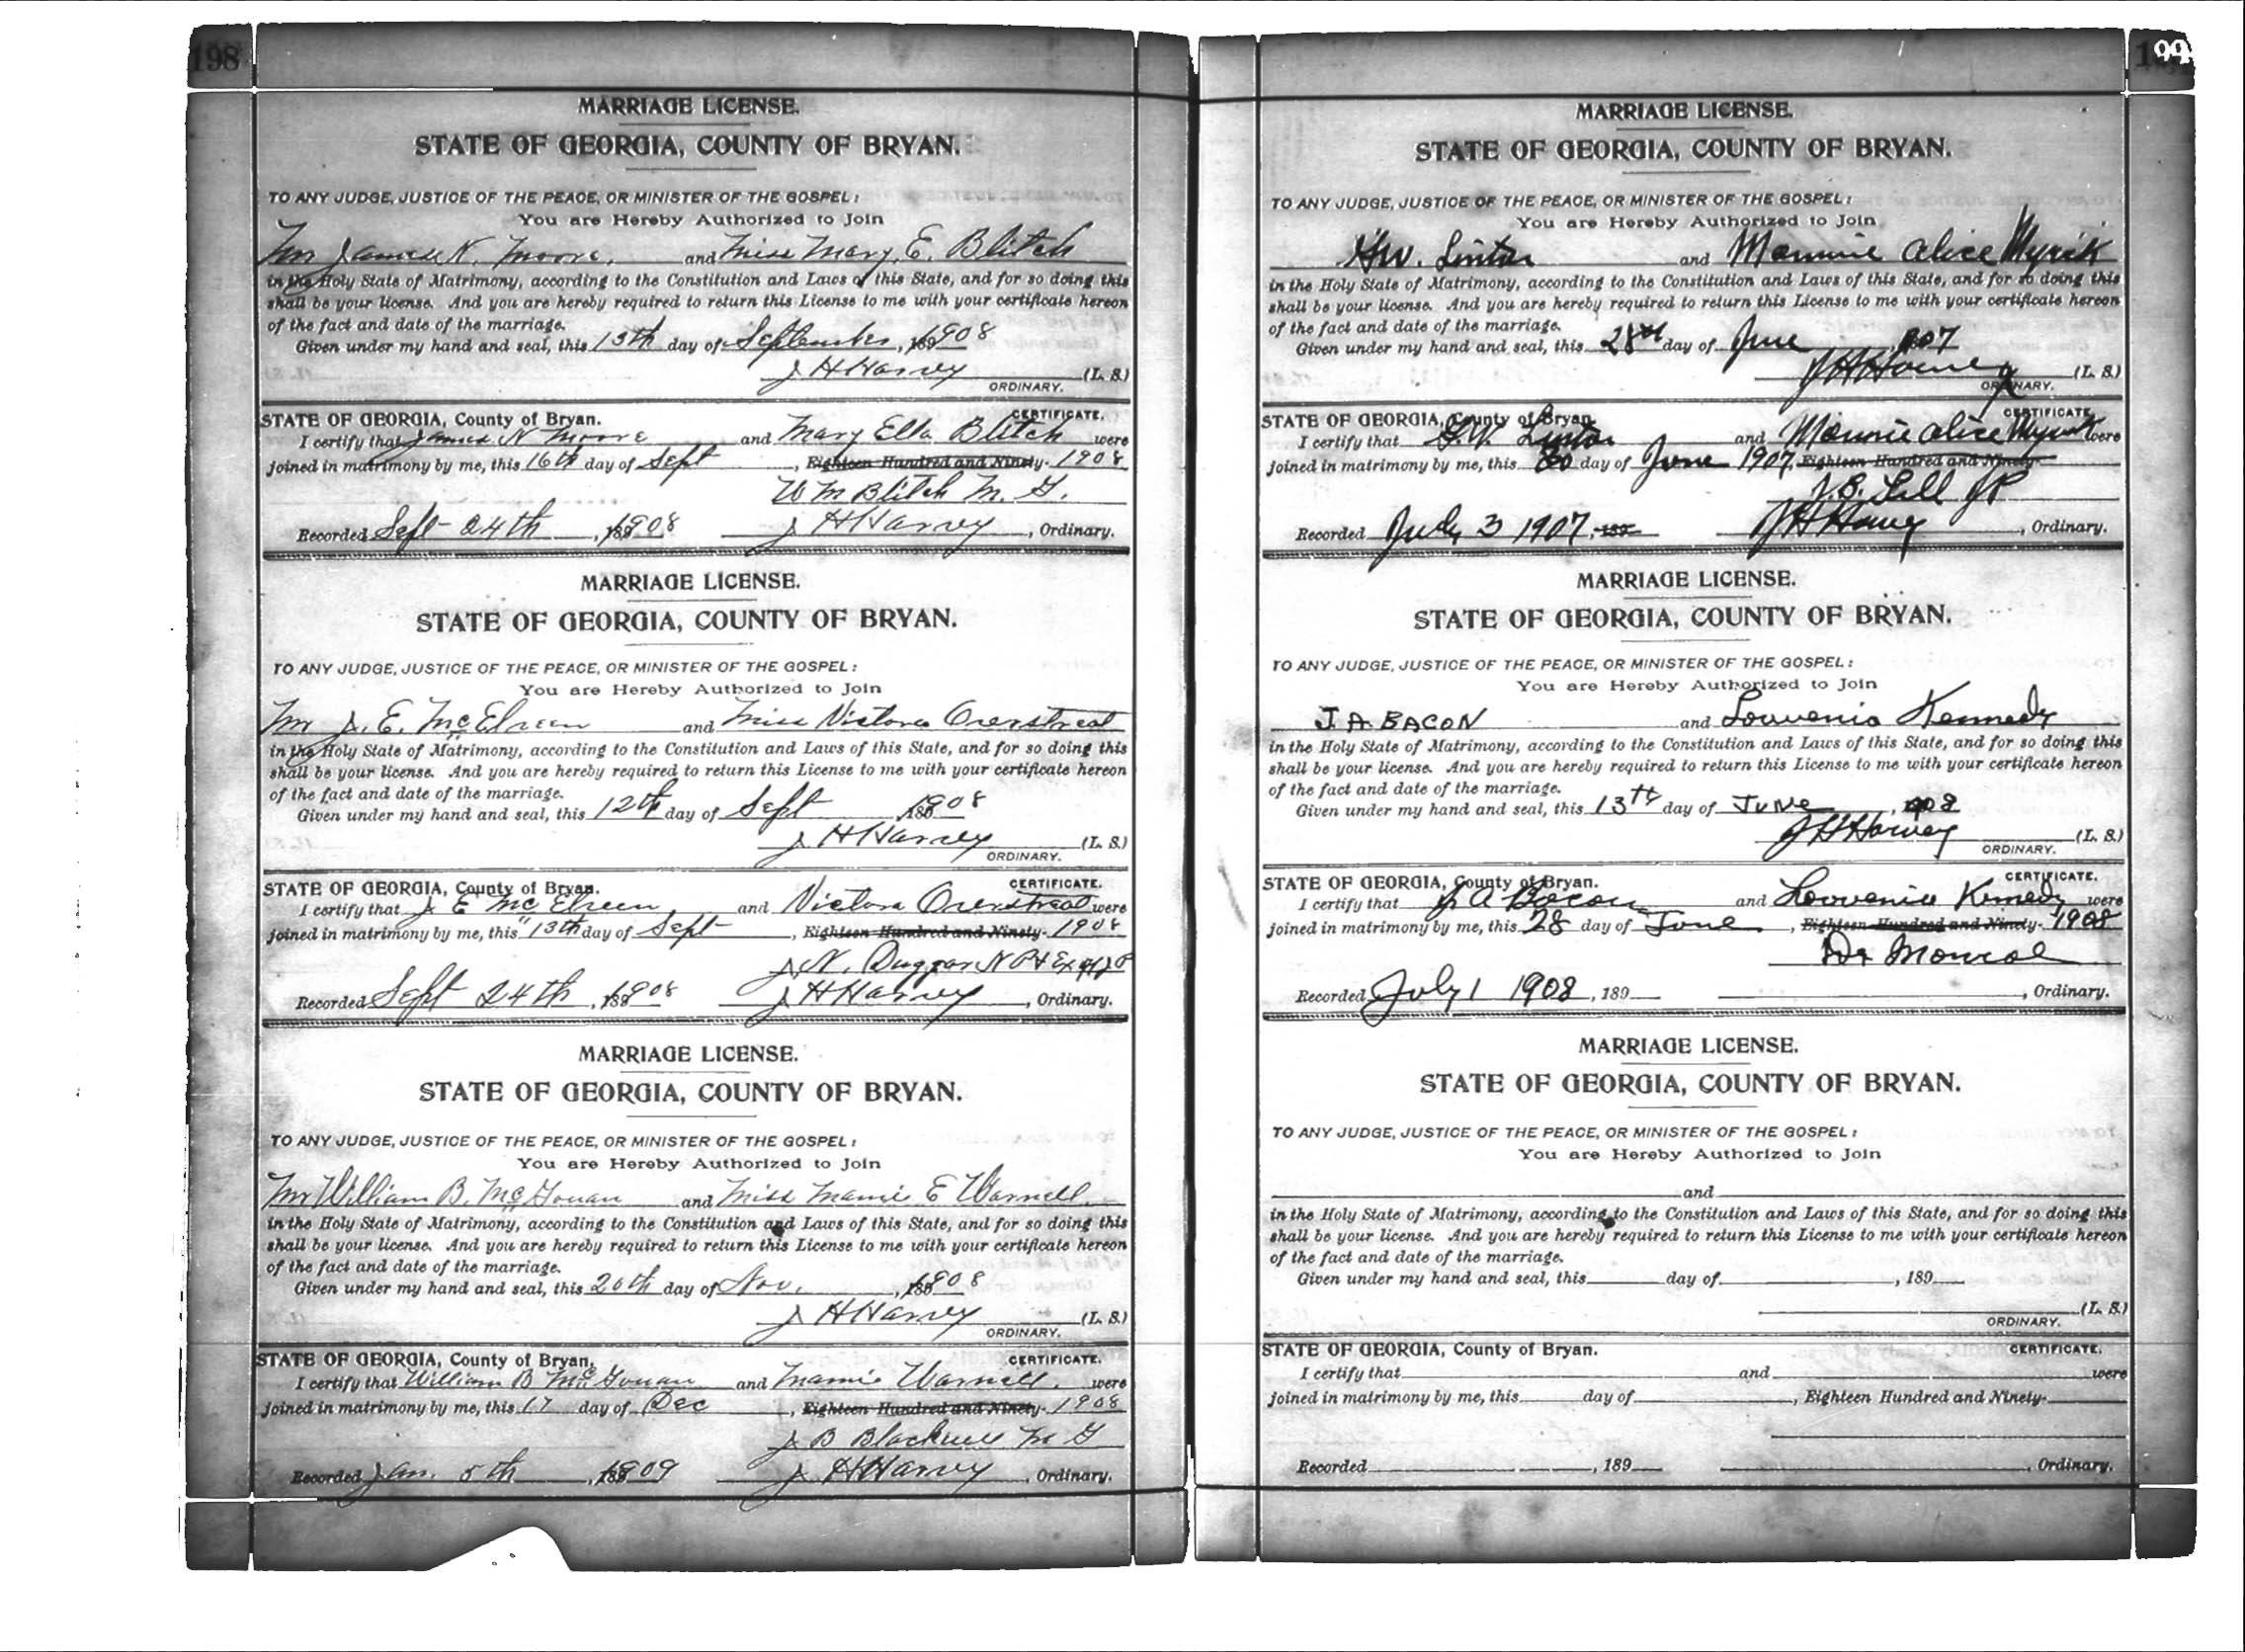 198
MARRIAGE LICENSE.
STATE OF GEORGIA, COUNTY OF BRYAN.
TO ANY JUDGE, JUSTICE OF THE PEACE, OR MINISTER OF THE GOSPEL:
You are Hereby Authorized to Join
Mr James N. Moore, and Miss Mary E. Blitch
in the Holy State of Matrimony, according to the Constitution and Laws of this State, and for so doing this
shall be your license. And you are hereby required to return this License to me with your certificate hereon
of the fact and date of the marriage.
Given under my hand and seal, this 13th day of September, 1908
J H Harvey (L. S.)
ORDINARY.
STATE OF GEORGIA, County of Bryan. CERTIFICATE.
I certify that James N Moore and Mary Ella Blitch were
joined in matrimony by me, this 16th day of Sept, Eighteen Hundred and Ninety- 1908
W M Blitch M. G.
Recorded Sept 24th, 1908 J H Harvey, Ordinary.
MARRIAGE LICENSE.
STATE OF GEORGIA, COUNTY OF BRYAN.
TO ANY JUDGE, JUSTICE OF THE PEACE, OR MINISTER OF THE GOSPEL:
You are Hereby Authorized to Join
Mr J. E. McElveen and Miss Victora Overstreat
in the Holy State of Matrimony, according to the Constitution and Laws of this State, and for so doing this
shall be your license. And you are hereby required to return this License to me with your certificate hereon
of the fact and date of the marriage.
Given under my hand and seal, this 12th day of Sept, 1908
J H Harvey (L. S.)
ORDINARY.
STATE OF GEORGIA, County of Bryan. CERTIFICATE.
I certify that J E McElveen and Victora Overstreat were
joined in matrimony by me, this 13th day of Sept, Eighteen Hundred and Ninety- 1908
J. N. Duggar N P & Ex off J P
Recorded Sept 24th, 1908 J H Harvey, Ordinary.
MARRIAGE LICENSE.
STATE OF GEORGIA, COUNTY OF BRYAN.
TO ANY JUDGE, JUSTICE OF THE PEACE, OR MINISTER OF THE GOSPEL:
You are Hereby Authorized to Join
Mr William B. McGouan and Miss Mamie E Warnell
in the Holy State of Matrimony, according to the Constitution and Laws of this State, and for so doing this
shall be your license. And you are hereby required to return this License to me with your certificate hereon
of the fact and date of the marriage.
Given under my hand and seal, this 20th day of Nov., 1908
J H Harvey (L. S.)
ORDINARY.
STATE OF GEORGIA, County of Bryan, CERTIFICATE.
I certify that William B McGouan and Mamie Warnell. were
joined in matrimony by me, this 17 day of Dec, Eighteen Hundred and Ninety- 1908
J B Blackwell M G
Recorded Jan. 5th, 1909 J H Harvey, Ordinary.
199
MARRIAGE LICENSE.
STATE OF GEORGIA, COUNTY OF BRYAN.
TO ANY JUDGE, JUSTICE OF THE PEACE, OR MINISTER OF THE GOSPEL:
You are Hereby Authorized to Join
Linton and Mannie Alice Myrick
in the Holy State of Matrimony, according to the Constitution and Laws of this State, and for so doing this
shall be your license. And you are hereby required to return this License to me with your certificate hereon
of the fact and date of the marriage.
Given under my hand and seal, this 28th day of June, 1907
J H Harvey (L. S.)
ORDINARY.
STATE OF GEORGIA, County of Bryan. CERTIFICATE.
I certify that Linton and Mannie Alice Myrick were
joined in matrimony by me, this 30 day of June 1907, Eighteen Hundred and Ninety-
J P
Recorded July 3 1907, 189 J H Harvey, Ordinary.
MARRIAGE LICENSE.
STATE OF GEORGIA, COUNTY OF BRYAN.
TO ANY JUDGE, JUSTICE OF THE PEACE, OR MINISTER OF THE GOSPEL:
You are Hereby Authorized to Join
J. A. BACON and Louvenia Kennedy
in the Holy State of Matrimony, according to the Constitution and Laws of this State, and for so doing this
shall be your license. And you are hereby required to return this License to me with your certificate hereon
of the fact and date of the marriage.
Given under my hand and seal, this 13th day of June, 908
J H Harvey (L. S.)
ORDINARY.
STATE OF GEORGIA, County of Bryan. CERTIFICATE.
I certify that J A Bacon and Loovenia Kennedy were
joined in matrimony by me, this 28 day of June, Eighteen Hundred and Ninety- 1908
Monroe
Recorded July 1 1908, 189 , Ordinary.
MARRIAGE LICENSE.
STATE OF GEORGIA, COUNTY OF BRYAN.
TO ANY JUDGE, JUSTICE OF THE PEACE, OR MINISTER OF THE GOSPEL:
You are Hereby Authorized to Join
and
in the Holy State of Matrimony, according to the Constitution and Laws of this State, and for so doing this
shall be your license. And you are hereby required to return this License to me with your certificate hereon
of the fact and date of the marriage.
Given under my hand and seal, this day of , 189
(L. S.)
ORDINARY.
STATE OF GEORGIA, County of Bryan. CERTIFICATE.
I certify that and were
joined in matrimony by me, this day of , Eighteen Hundred and Ninety-
Recorded , 189 , Ordinary.